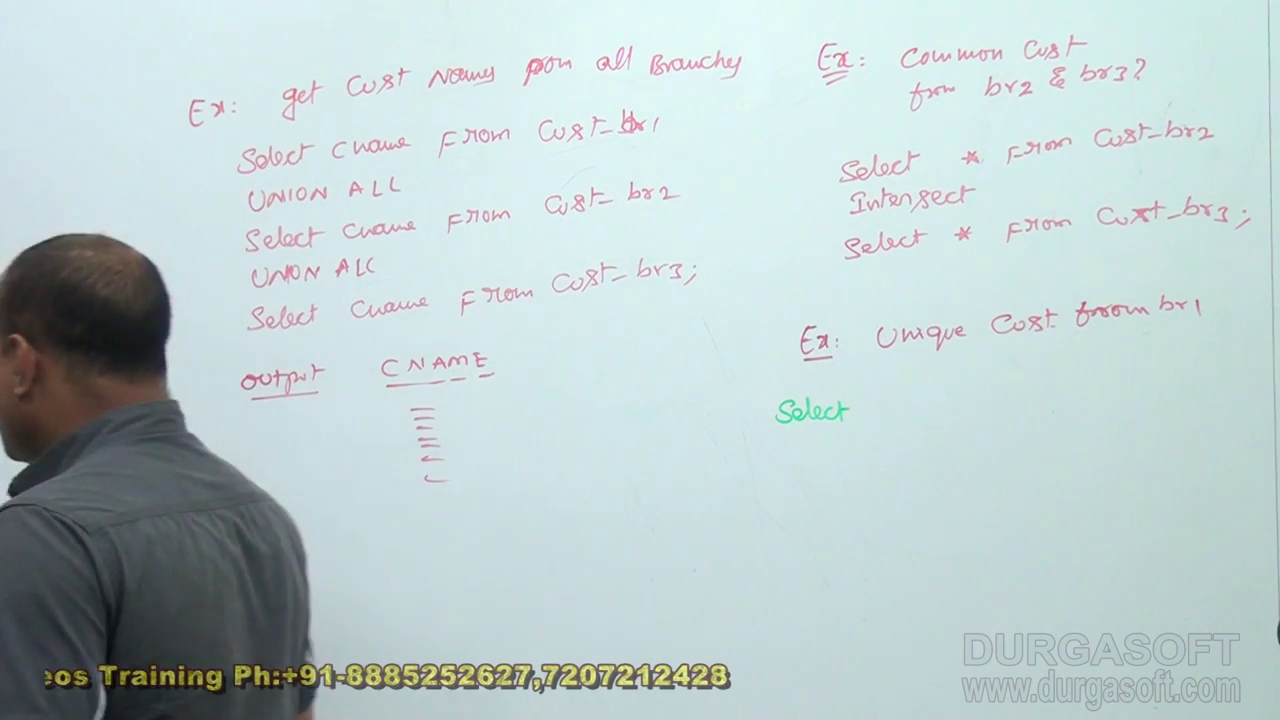 Ex: get Cust Names from all Branches
Select Cname From Cust_br1
UNION ALL
Select Cname From Cust_br2
UNION ALL
Select Cname From Cust_br3;
Output CNAME
Ex: Common Cust
from br2 & br3?
Select * From Cust_br2
Intersect
Select * From Cust_br3;
Ex: Unique Cust from br1
Select
eos Training Ph:+91-8885252627,7207212428
DURGASOFT
www.durgasoft.com